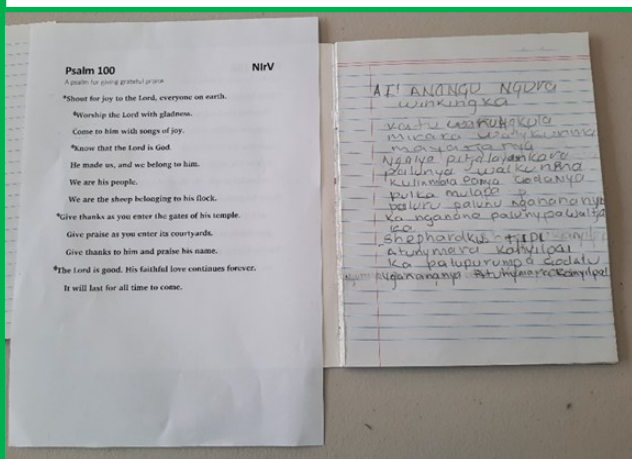 Psalm 100 NIrV
A psalm for giving grateful praise.
¹Shout for joy to the Lord, everyone on earth.
²Worship the Lord with gladness.
Come to him with songs of joy.
³Know that the Lord is God.
He made us, and we belong to him.
We are his people.
We are the sheep belonging to his flock.
⁴Give thanks as you enter the gates of his temple.
Give praise as you enter its courtyards.
Give thanks to him and praise his name.
⁵The Lord is good. His faithful love continues forever.
It will last for all time to come.
AI! ANANGU NGURA
winkingka
mirara
palunya
Kulinmala Panya Godanya
pulka mulapa
paluru palunu nganananya
ka nganana
ka
Shephardku tjitji
Atunymara Kanyilpai
Ka palupurunpa Godalu
nganananya Atunymara Kanyilpai